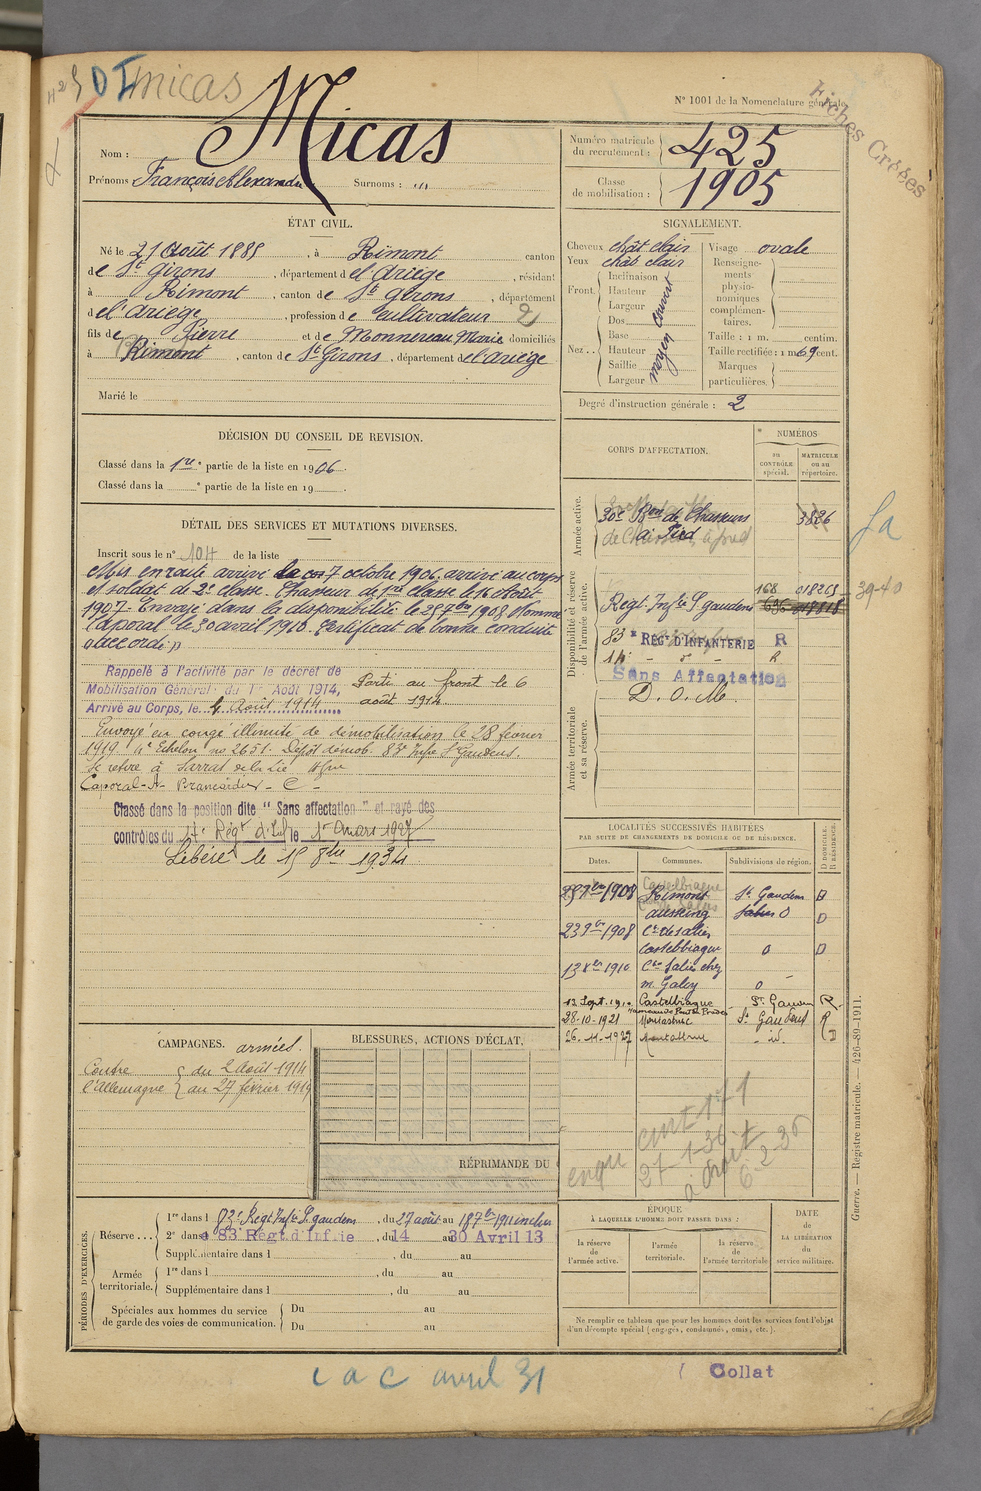 DI micas
N° 1001 de la Nomenclature générale
Fiches Créées
Nom : Micas
Prénoms François Alexandre Surnoms : "
Numéro matricule du recrutement : 425
Classe de mobilisation : 1905
ÉTAT CIVIL.
Né le 21 Août 1885, à Rimont canton
de St Girons, département de l'Ariège, résidant
à Rimont, canton de St Girons, département
de l'Ariège, profession de Cultivateur 2
fils de Pierre et de Monnereau Marie domiciliés
à Rimont, canton de St Girons, département de l'Ariège
Marié le
SIGNALEMENT.
Cheveux chât clair
Yeux chât clair
Front. Inclinaison
Hauteur
Largeur
Nez.. Dos
Base
Hauteur
Saillie
Largeur
moyen couvert
Visage ovale
Renseigne-
ments
physio-
nomiques
complémen-
taires.
Taille : 1 m. centim.
Taille rectifiée : 1 m 69 cent.
Marques
particulières.
Degré d'instruction générale : 2
DÉCISION DU CONSEIL DE REVISION.
Classé dans la 1re partie de la liste en 1906.
Classé dans la e partie de la liste en 19
DÉTAIL DES SERVICES ET MUTATIONS DIVERSES.
Inscrit sous le n° 104 de la liste
Mis en route arrivé le 7 octobre 1906. arrivé au corps
et soldat de 2e classe. Chasseur de 1re classe le 16 Août
1907. Envoyé dans la disponibilité le 25 7bre 1908 Nommé
Caporal le 30 avril 1910. Certificat de bonne conduite
accordé.
Rappelé à l'activité par le décret de
Mobilisation Générale du 1er Août 1914,
Arrivé au Corps, le 4 Août 1914
Parti au front le 6
août 1914
Envoyé en congé illimité de démobilisation le 28 février
1919. 4e Echelon no 2651. Dépôt démob. 83e Infie St Gaudens.
Se retire à
Caporal
Classé dans la position dite " Sans affectation " et rayé des
contrôles du 14e Régt d'Inf le 1er Mars 1927
Libéré le 15 8bre 1934
CORPS D'AFFECTATION.
NUMÉROS
au CONTRÔLE spécial.
MATRICULE ou au répertoire.
Armée active.
30e Bon de Chasseurs 3826
à Pied
Disponibilité et réserve de l'armée active.
Regt Infie St gaudens 168 018203
83 e RÉG. D'INFANTERIE R
14 - d° - R
Sans Affectation
D. O. M.
39-40
Armée territoriale et sa réserve.
LOCALITÉS SUCCESSIVES HABITÉES
PAR SUITE DE CHANGEMENTS DE DOMICILE OU DE RÉSIDENCE.
Dates. Communes. Subdivisions de région. D DOMICILE. R RÉSIDENCE.
25 7bre 1908 Rimont St Gaudens D
23 9bre 1908 Cne de Salies
Castelbiague D D
13 8bre 1910 Cne Salies chez
m. Galey
13 Sept. 191 Castelbiague St Gaudens R
28-10-1921 Montastruc St Gaudens R
26-11-1927 - id. D
27-1-36
à droit
6-2-36
CAMPAGNES.
Contre du 2 août 1914
l'Allemagne au 27 février 1919
BLESSURES, ACTIONS D'ÉCLAT,
RÉPRIMANDE DU
PÉRIODES D'EXERCICES.
Réserve . . . 1re dans l 83e Régt Infie St gaudens, du 27 août au 18 7bre 1911 inclus
2e dans l e 83 Régt d'Inf.rie, du 14 au 30 Avril 13
Supplémentaire dans l , du au
Armée territoriale. 1re dans l , du au
Supplémentaire dans l , du au
Spéciales aux hommes du service
de garde des voies de communication. Du au
Du au
ÉPOQUE
À LAQUELLE L'HOMME DOIT PASSER DANS :
la réserve de l'armée active.
l'armée territoriale.
la réserve de l'armée territoriale
DATE de LA LIBÉRATION du service militaire.
Ne remplir ce tableau que pour les hommes dont les services font l'objet
d'un décompte spécial (engagés, condamnés, omis, etc.).
Guerre. — Registre matricule. — 426-89-1911.
c a c avril 31
Collat